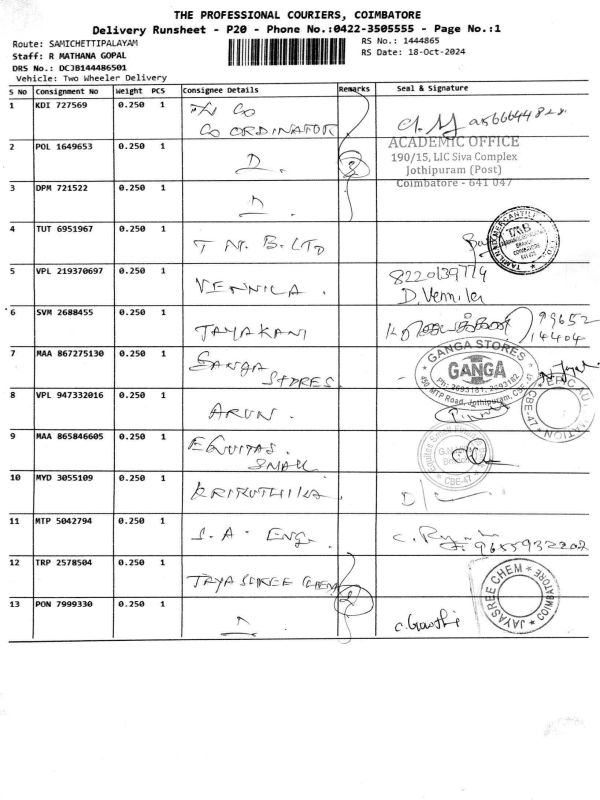 THE PROFESSIONAL COURIERS, COIMBATORE
Delivery Runsheet - P20 - Phone No.:0422-3505555 - Page No.:1
Route: SAMICHETTIPALAYAM
RS No.: 1444865
Staff: R MATHANA GOPAL
RS Date: 18-Oct-2024
DRS No.: DCJB144486501
Vehicle: Two Wheeler Delivery
S No Consignment No Weight PCS Consignee Details Remarks Seal & Signature
1 KDI 727569 0.250 1
CO ORDINATOR
ACADEMIC OFFICE
2 POL 1649653 0.250 1
190/15, LIC Siva Complex
Jothipuram (Post)
3 DPM 721522 0.250 1
Coimbatore - 641 047
4 TUT 6951967 0.250 1
T N. B. LTD
TMB
5 VPL 219370697 0.250 1
VENNILA.
D. Vennila
6 SVM 2688455 0.250 1
JAYAKANI
99652
14404
7 MAA 867275130 0.250 1
GANGA STORES
GANGA STORES
GANGA
Ph: 2693181, 2693182
450 MTP Road, Jothipuram, CBE-47
8 VPL 947332016 0.250 1
ARUN.
CBE-47
9 MAA 865846605 0.250 1
EQUITAS
SMALL
CBE-47
10 MYD 3055109 0.250 1
KRIRUTHIKA
11 MTP 5042794 0.250 1
S. A. ENG.
9655932202
12 TRP 2578504 0.250 1
JAYA SHREE CHEM
2
JAYASREE CHEM
COIMBATORE
13 PON 7999330 0.250 1